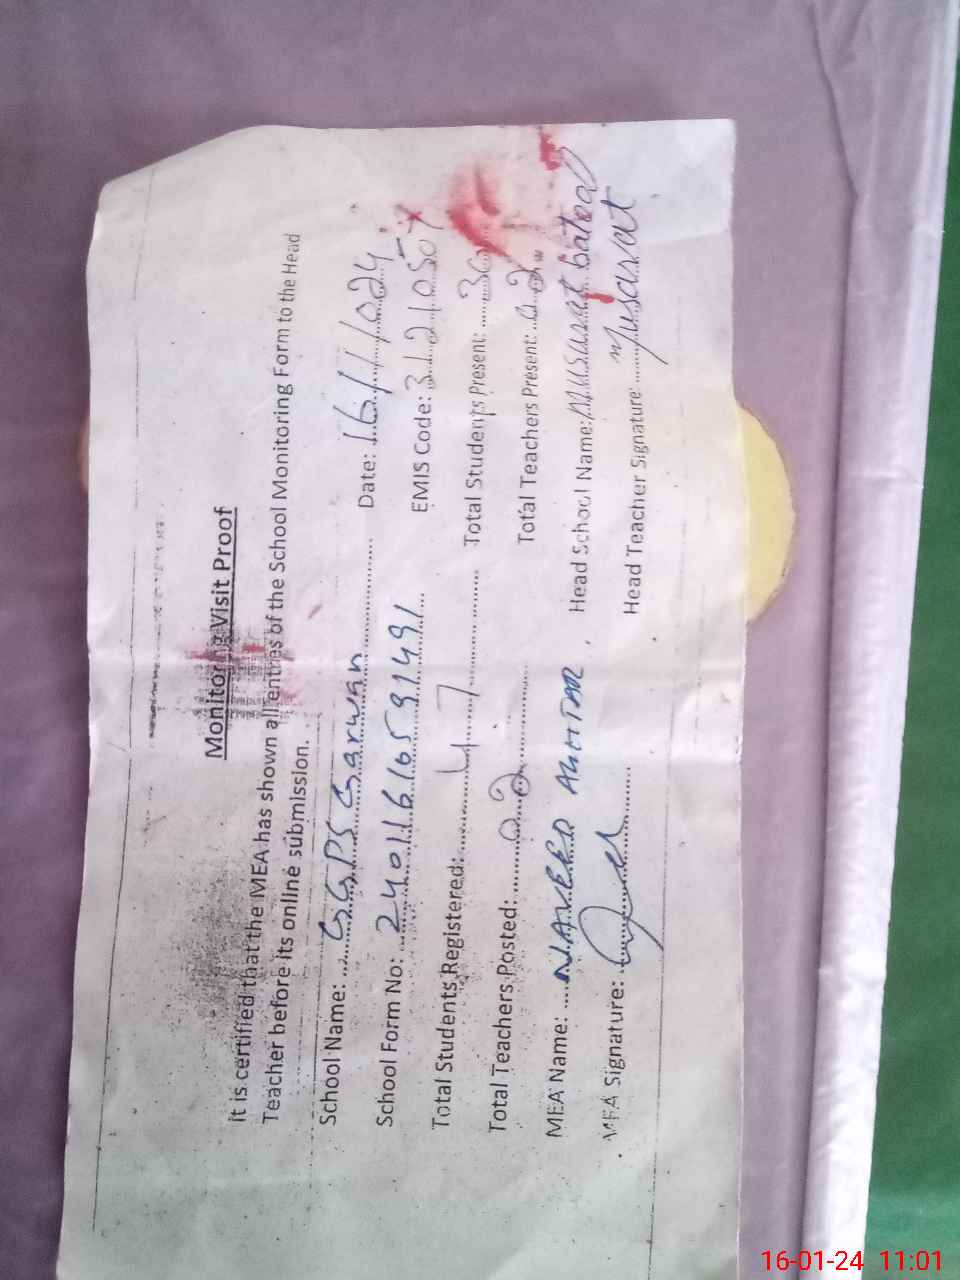 Monitoring Visit Proof
It is certified that the MEA has shown all entries of the School Monitoring Form to the Head
Teacher before its online submission.
School Name: GGPS Sarwan Date: 16/1/024
School Form No: 24011616591491 EMIS Code: 31210507
Total Students Registered: 47 Total Students Present: 30
Total Teachers Posted: 02 Total Teachers Present: 02
MEA Name: NAVEED AKHTAR, Head School Name: Musarat batool
MEA Signature: Head Teacher Signature: Musarat
16-01-24 11:01